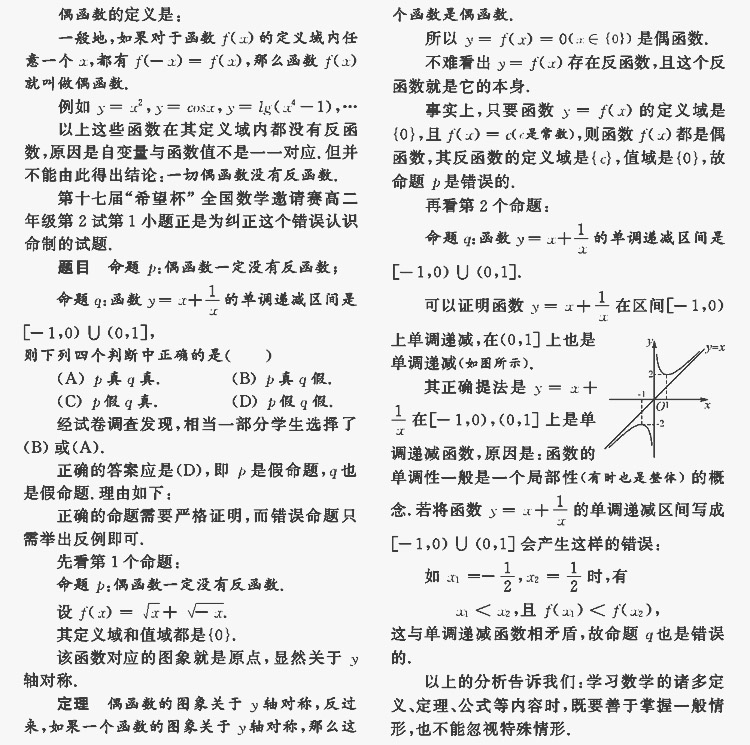 偶函数的定义是:
一般地,如果对于函数 f(x) 的定义域内任
意一个 x,都有 f(-x) = f(x),那么函数 f(x)
就叫做偶函数.
例如 y = x²,y = cosx,y = lg(x⁴-1),…
以上这些函数在其定义域内都没有反函
数,原因是自变量与函数值不是一一对应.但并
不能由此得出结论:一切偶函数没有反函数.
第十七届“希望杯”全国数学邀请赛高二
年级第 2 试第 1 小题正是为纠正这个错误认识
命制的试题.
题目 命题 p:偶函数一定没有反函数;
命题 q:函数 y = x+1/x 的单调递减区间是
[-1,0) ∪ (0,1],
则下列四个判断中正确的是( )
(A) p 真 q 真. (B) p 真 q 假.
(C) p 假 q 真. (D) p 假 q 假.
经试卷调查发现,相当一部分学生选择了
(B) 或(A).
正确的答案应是(D),即 p 是假命题,q 也
是假命题.理由如下:
正确的命题需要严格证明,而错误命题只
需举出反例即可.
先看第 1 个命题:
命题 p:偶函数一定没有反函数.
设 f(x) = √x + √-x.
其定义域和值域都是{0}.
该函数对应的图象就是原点,显然关于 y
轴对称.
定理 偶函数的图象关于 y 轴对称,反过
来,如果一个函数的图象关于 y 轴对称,那么这
个函数是偶函数.
所以 y = f(x) = 0(x∈{0})是偶函数.
不难看出 y = f(x) 存在反函数,且这个反
函数就是它的本身.
事实上,只要函数 y = f(x) 的定义域是
{0},且 f(x) = c(c是常数),则函数 f(x) 都是偶
函数,其反函数的定义域是{c},值域是{0},故
命题 p 是错误的.
再看第 2 个命题:
命题 q:函数 y = x+1/x 的单调递减区间是
[-1,0) ∪ (0,1].
可以证明函数 y = x+1/x 在区间[-1,0)
上单调递减,在(0,1] 上也是
单调递减(如图所示).
其正确提法是 y = x+
1/x 在[-1,0),(0,1] 上是单
调递减函数,原因是:函数的
y
y=x
2
-1
O
1
x
-2
单调性一般是一个局部性(有时也是整体) 的概
念.若将函数 y = x+1/x 的单调递减区间写成
[-1,0) ∪ (0,1] 会产生这样的错误:
如 x₁ = -1/2,x₂ = 1/2 时,有
x₁ < x₂,且 f(x₁) < f(x₂),
这与单调递减函数相矛盾,故命题 q 也是错误
的.
以上的分析告诉我们:学习数学的诸多定
义、定理、公式等内容时,既要善于掌握一般情
形,也不能忽视特殊情形.